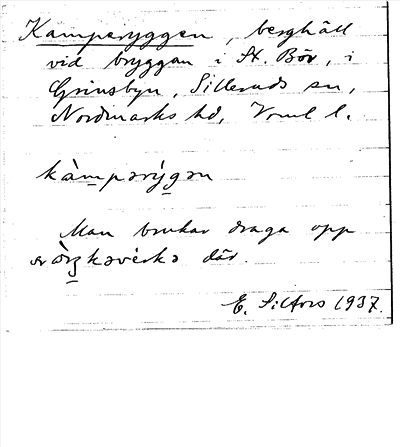 Kamperyggen, berghäll
vid bryggan i St. Bör, i
Grinsbyn, Silleruds sn,
Nordmarks hd, Vrml l.
kàmpərýgən
Man brukar draga opp
där.
E. Silfors 1937.